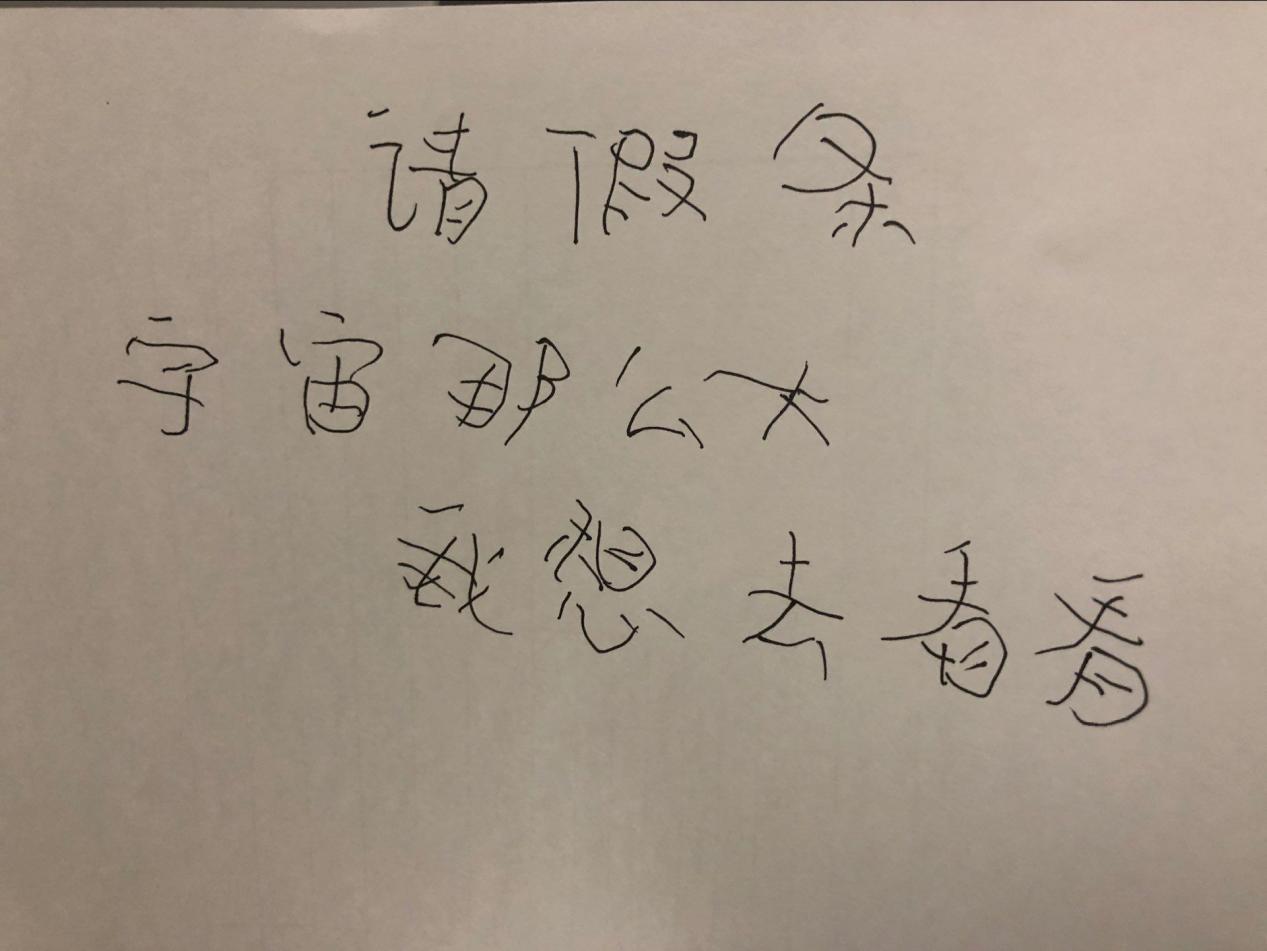 请假条
宇宙那么大
我想去看看